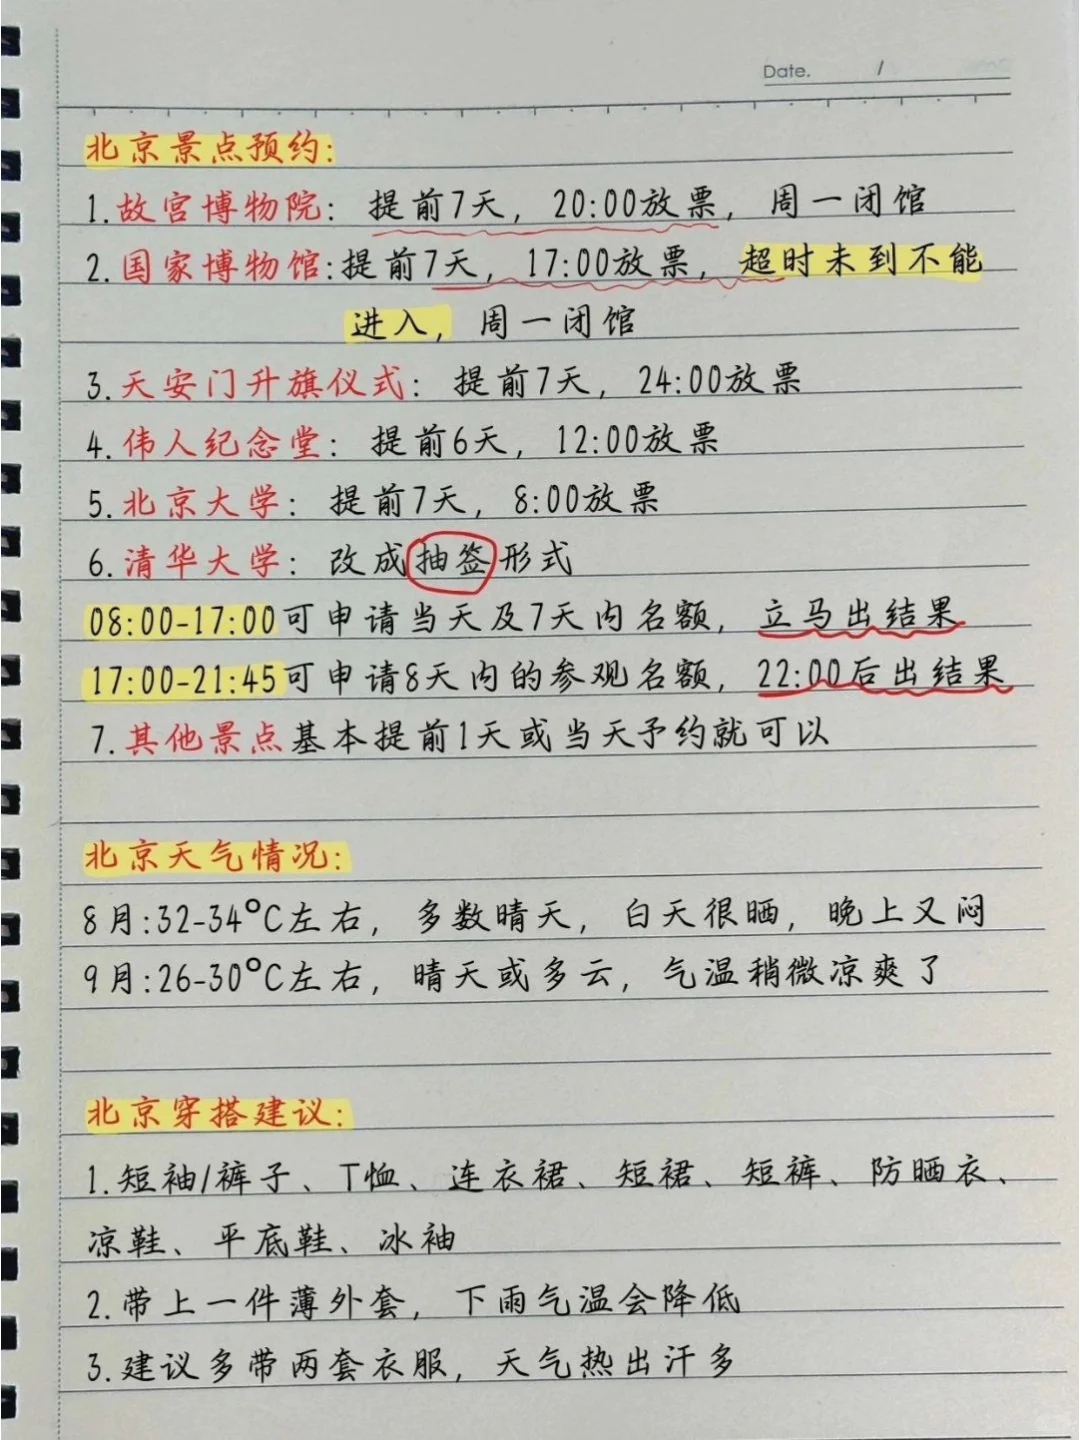 Date. /
北京景点预约:
1.故宫博物院: 提前7天, 20:00放票, 周一闭馆
2.国家博物馆:提前7天, 17:00放票, 超时未到不能
进入, 周一闭馆
3.天安门升旗仪式: 提前7天, 24:00放票
4.伟人纪念堂: 提前6天, 12:00放票
5.北京大学: 提前7天, 8:00放票
6.清华大学: 改成抽签形式
08:00-17:00可申请当天及7天内名额, 立马出结果
17:00-21:45可申请8天内的参观名额, 22:00后出结果
7.其他景点基本提前1天或当天予约就可以
北京天气情况:
8月:32-34°C左右, 多数晴天, 白天很晒, 晚上又闷
9月:26-30°C左右, 晴天或多云, 气温稍微凉爽了
北京穿搭建议:
1.短袖/裤子、T恤、连衣裙、短裙、短裤、防晒衣、
凉鞋、平底鞋、冰袖
2.带上一件薄外套, 下雨气温会降低
3.建议多带两套衣服, 天气热出汗多